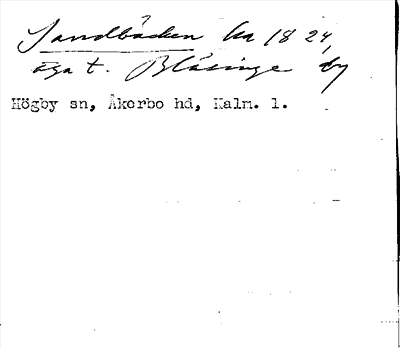 Sandbäcken ha 1824,
äga t. Blåsinge by
Högby sn, Åkerbo hd, Kalm. l.